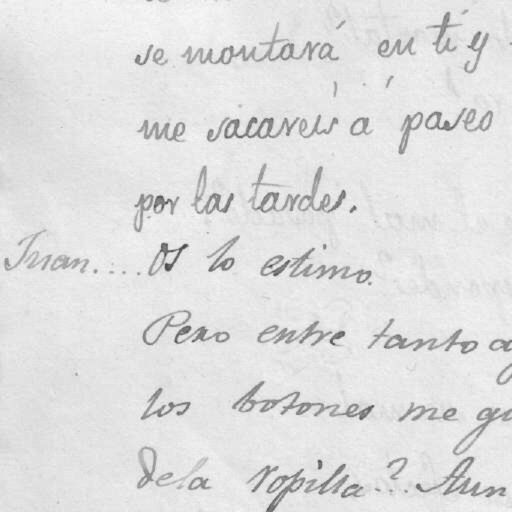 se montará en tí y
me sacareís á paseo
por las tardes.
Juan.... Os lo estimo.
Pero entre tanto
los botones me
dela ropilla?.. Aun